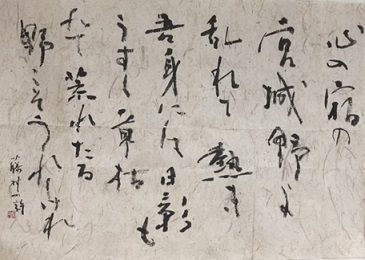 心の宿の
宮城野よ
乱れて熱き
吾身には日影も
うすく草枯
れて荒れたる
野こそうれしけれ
藤村詩